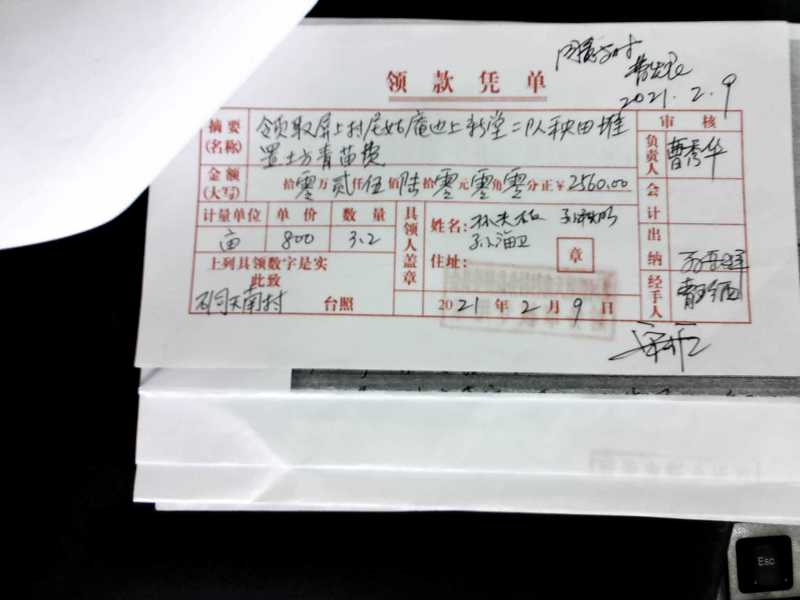 领款凭单
同意支付
2021.2.9
摘要 领取屏上村尼姑庵边上新堂二队秧田堆 审核
(名称) 置土方青苗费 负责人 曹秀华
金额 拾零万贰仟伍佰陆拾零元零角零分正￥2560.00 会计
(大写)
计量单位 单价 数量 具领人盖章 姓名：
亩 800 3.2 孙海卫 出纳
上列具领数字是实 住址： 章
此致 经手人
天南村 台照 2021年2月9日
Esc